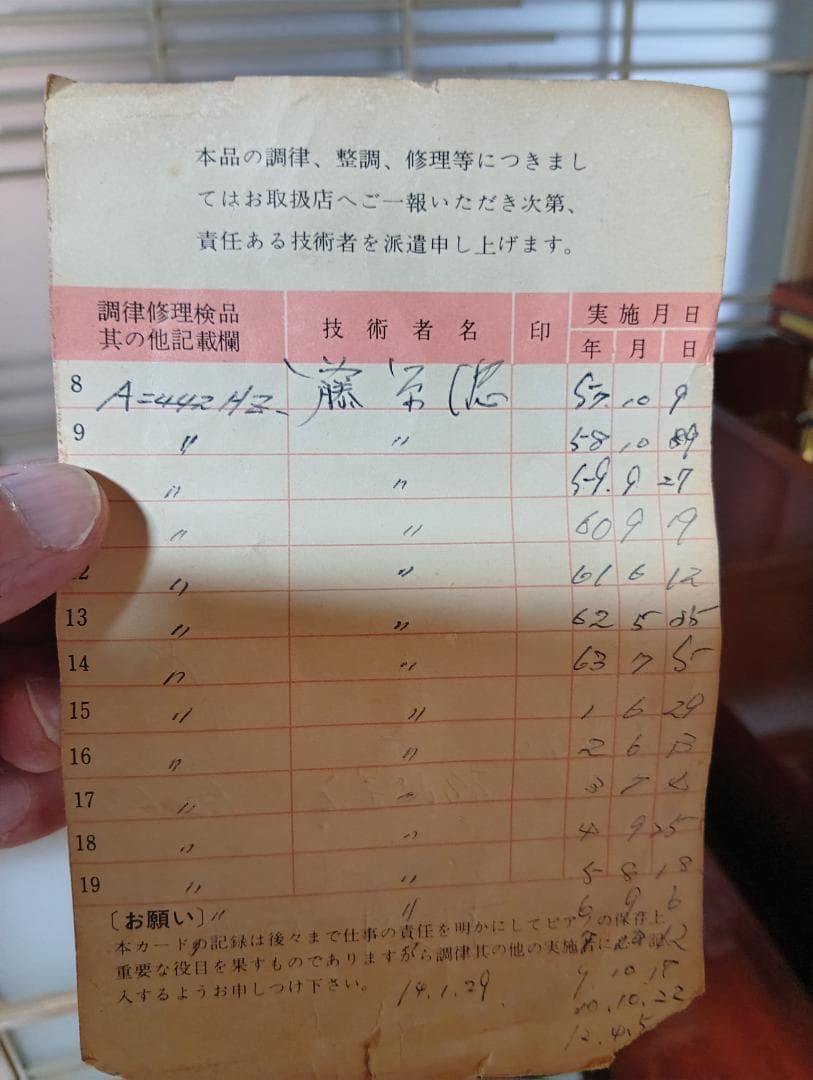 本品の調律、整調、修理等につきまし
てはお取扱店へご一報いただき次第、
責任ある技術者を派遣申し上げます。
調律修理検品 其の他記載欄 技術者名 印 実施月日
年 月 日
8 A=442HZ. 57. 10 9
9 〃 〃 58 10
〃 〃 59. 9 27
〃 〃 60 9 19
〃 〃 61 6 12
13 〃 〃 62 5
14 〃 〃 63 7 5
15 〃 〃 1 6 29
16 〃 〃 2 6 13
17 〃 〃 3 7
18 〃 〃 4 9 25
19 〃 〃 5 8 18
〔お願い〕 〃 〃 6 9 6
本カードの記録は後々まで仕事の責任を明かにしてピアノの保存上
重要な役目を果すものでありますから調律其の他の実施者に必ず記 12
入するようお申しつけ下さい。 14.1.29 9 10 18
10.10.22
12.4.5